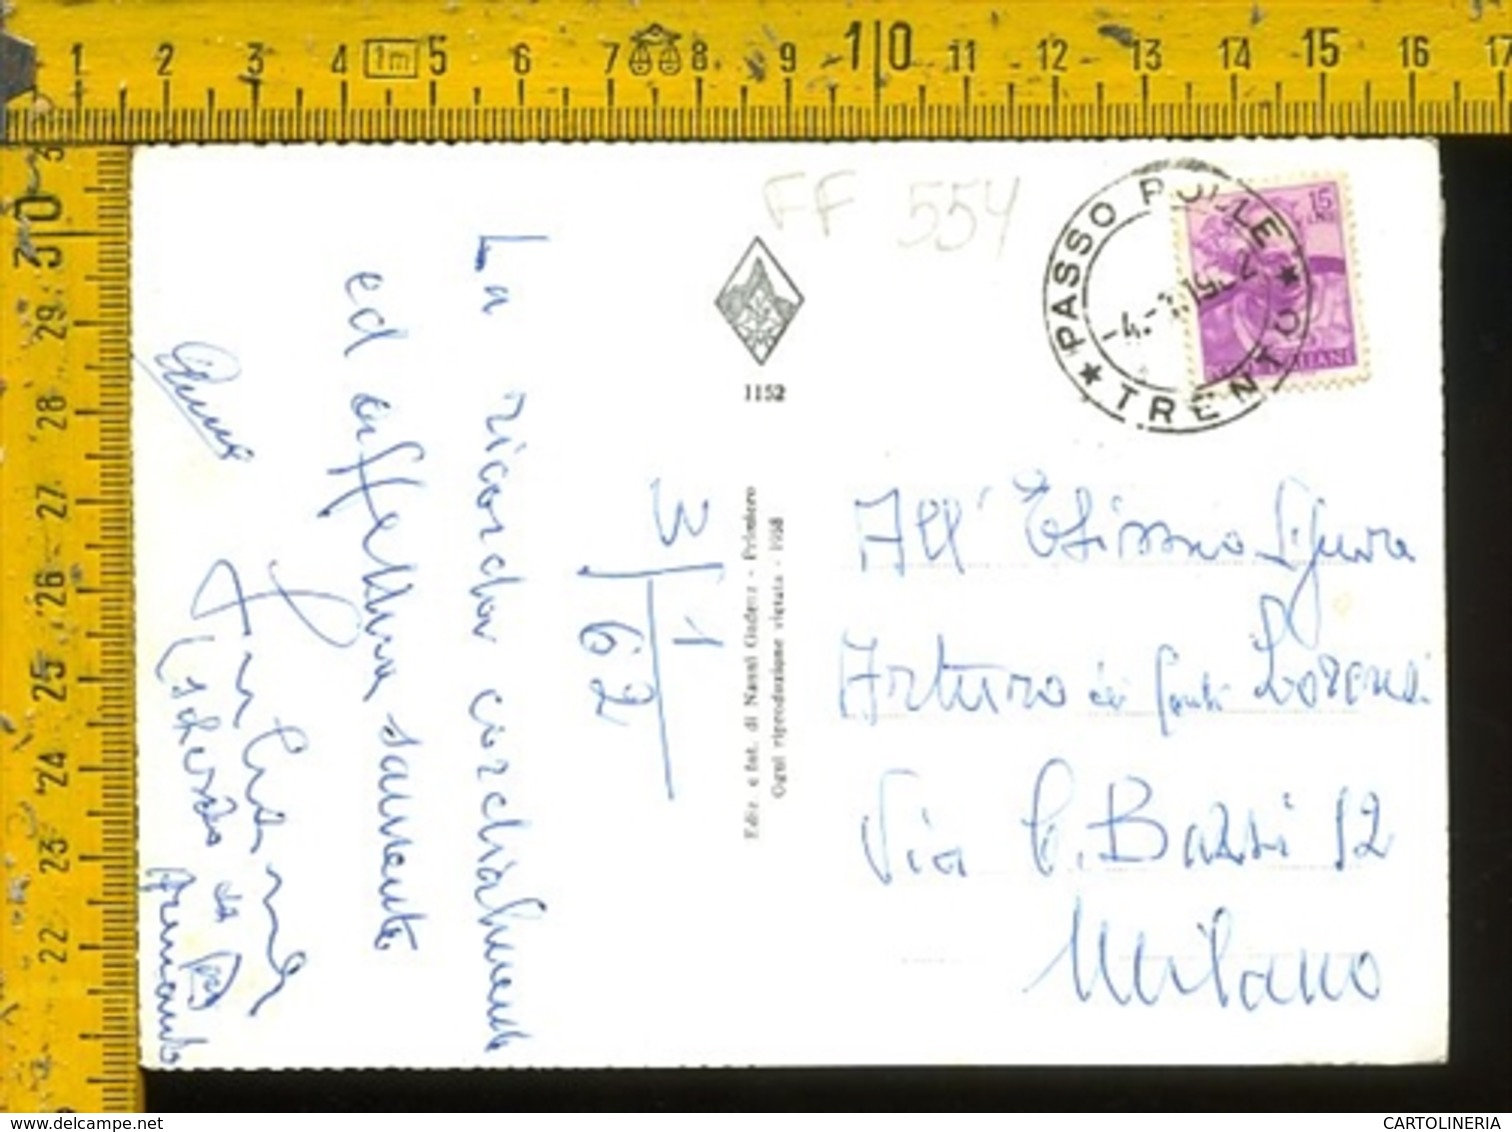 1 2 3 4 1m 5 6 7 8 9 10 11 12 13 14 15 16 17
30
29
28
27
26
25
24
23
22
FF 554
PASSO ROLLE
-4.-1.1962
TRENTO
15
LIRE
1152
Ediz. e fot. di Nanni Gadenz - Primiero
Ogni riproduzione vietata - 1958
3/1
62
La ricordo cordialmente
ed affettuosamente
Armando
All' Signora
Arturo Lorenzi
Via C. Bazzi 12
Milano
www.delcampe.net
CARTOLINERIA